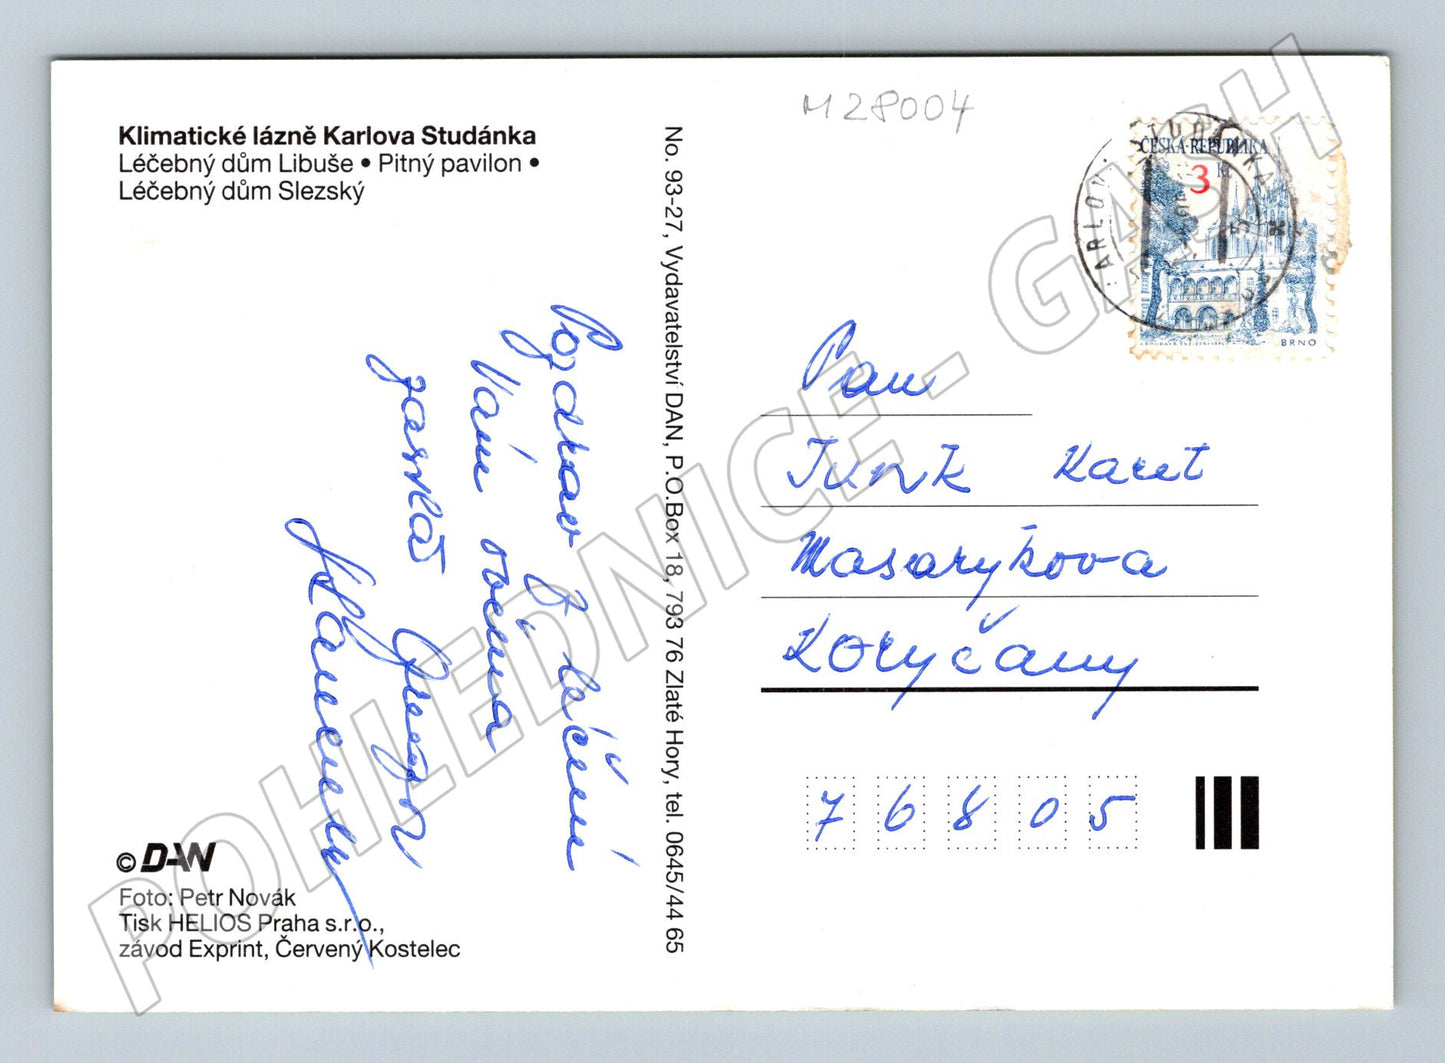 Klimatické lázně Karlova Studánka
Léčebný dům Libuše • Pitný pavilon •
Léčebný dům Slezský
M28004
ČESKÁ REPUBLIKA
3 Kč
BRNO
No. 93-27, Vydavatelství DAN, P.O.Box 18, 793 76 Zlaté Hory, tel. 0645/44 65
Pozdrav z léčení
Vám
Pan
Karel
Masarykova
Koryčany
76805
© DAN
Foto: Petr Novák
Tisk HELIOS Praha s.r.o.,
závod Exprint, Červený Kostelec
POHLEDNICE - GASH